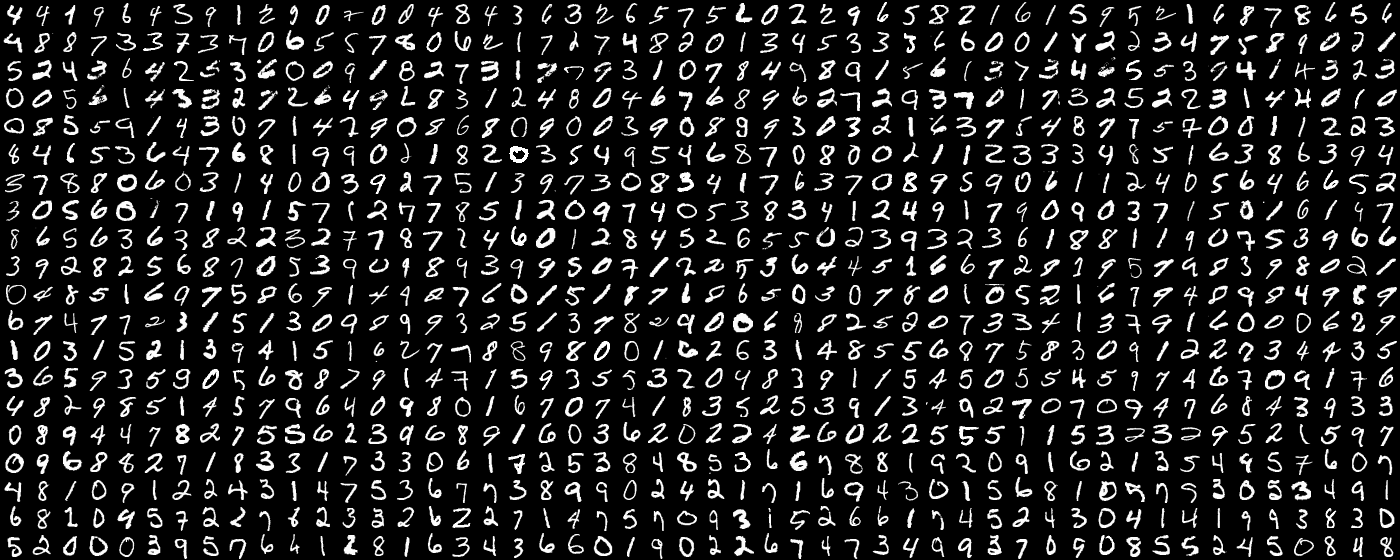 4 4 1 9 6 4 3 9 1 2 9 0 7 0 0 4 8 4 3 6 3 2 6 5 7 5 2 0 2 2 9 6 5 8 2 1 6 1 5 9 5 2 1 6 8 7 8 6 5 6
4 8 8 7 3 3 7 3 7 0 6 5 5 7 8 0 6 2 1 7 2 7 4 8 2 0 1 3 4 5 3 3 3 6 6 0 0 1 8 2 2 3 4 7 5 8 9 0 2 1
5 2 4 3 6 4 2 5 3 6 0 0 9 1 8 2 7 3 1 7 7 9 3 1 0 7 8 4 9 8 9 1 5 6 1 3 7 3 4 6 5 5 3 9 4 1 4 3 2 3
0 0 5 6 1 4 3 3 2 7 2 6 4 9 2 8 3 1 2 4 8 0 4 6 7 6 8 9 6 2 7 2 9 3 7 0 1 7 3 2 5 2 2 3 1 4 4 0 1 0
0 8 5 5 9 1 4 3 0 7 1 4 2 9 0 8 6 8 0 9 0 0 3 9 0 8 9 9 3 0 3 2 1 6 3 7 5 4 8 7 7 5 7 0 0 1 1 2 2 3
8 4 6 5 3 6 4 7 6 8 1 9 9 0 2 1 8 2 0 3 5 4 9 5 4 6 8 7 0 8 0 0 2 1 1 2 3 3 3 4 8 5 1 6 3 8 6 3 9 4
3 7 8 8 0 6 0 3 1 4 0 0 3 9 2 7 5 1 3 9 7 3 0 8 3 4 1 7 6 3 7 0 8 9 5 9 0 6 1 1 2 4 0 5 6 4 6 6 5 2
3 0 5 6 0 1 7 1 9 1 5 7 1 2 7 7 8 5 1 2 0 9 7 4 0 5 3 8 3 4 1 2 4 9 1 7 9 0 9 0 3 7 1 5 0 1 6 1 9 7
8 6 5 6 3 6 3 8 2 2 3 2 7 7 8 7 2 4 6 0 1 2 8 4 5 2 6 5 5 0 2 3 9 3 2 3 6 1 8 8 1 1 9 0 7 5 3 9 6 6
3 9 2 8 2 5 6 8 7 0 5 3 9 0 9 8 9 3 9 9 5 0 7 1 2 2 5 3 6 4 4 5 1 6 6 7 2 8 1 9 5 7 9 8 3 9 8 0 2 1
0 4 8 5 1 6 9 7 5 8 6 9 1 4 4 2 7 6 0 1 5 1 8 7 1 8 6 5 0 3 0 7 8 0 1 0 5 2 1 6 7 9 4 8 9 8 4 9 8 9
6 7 4 7 7 2 3 1 5 1 3 0 9 8 9 9 3 2 5 1 3 7 8 2 9 0 0 6 8 8 2 5 2 0 7 3 3 4 1 3 7 9 1 6 0 0 0 6 2 9
1 0 3 1 5 2 1 3 9 4 1 5 1 6 2 7 7 8 8 9 8 0 0 1 6 2 6 3 1 4 8 5 5 6 8 7 5 8 3 0 9 1 2 2 7 3 4 4 3 5
3 6 5 9 3 5 9 0 5 6 8 8 7 9 1 4 7 1 5 9 3 5 5 3 2 0 4 8 3 9 1 1 5 4 5 0 5 5 4 5 9 7 4 6 7 0 9 1 7 6
4 8 2 9 8 5 1 4 5 7 9 6 4 0 9 8 0 1 6 7 0 7 4 1 8 3 5 2 5 3 9 1 3 4 9 2 7 0 7 0 9 4 7 6 8 4 3 9 3 3
0 8 9 4 4 7 8 2 7 5 5 6 2 3 9 6 8 9 1 6 0 3 6 2 0 2 2 4 2 6 0 2 2 5 5 5 1 1 5 3 2 3 2 9 5 2 1 5 9 7
0 9 6 8 8 2 7 1 8 3 3 1 7 3 3 0 6 1 7 2 5 3 8 4 8 5 3 6 6 7 8 8 1 9 2 0 9 1 6 2 1 3 5 4 9 5 7 6 0 7
4 8 1 0 9 1 2 2 4 3 1 4 7 5 3 6 7 7 3 8 9 9 0 2 4 2 1 7 1 6 9 4 3 0 1 5 6 8 1 0 7 7 9 3 0 5 3 4 9 1
6 8 1 0 9 5 7 2 2 2 7 8 2 3 3 2 6 2 2 7 1 4 7 5 7 0 9 3 1 5 2 6 6 1 7 4 5 2 4 3 0 4 1 4 1 9 9 3 8 3 0
5 2 0 0 0 3 9 5 7 6 4 1 2 8 1 6 3 4 3 6 6 0 1 9 0 2 2 6 7 4 7 3 4 9 9 3 7 0 9 0 8 5 5 2 4 5 0 8 4 8